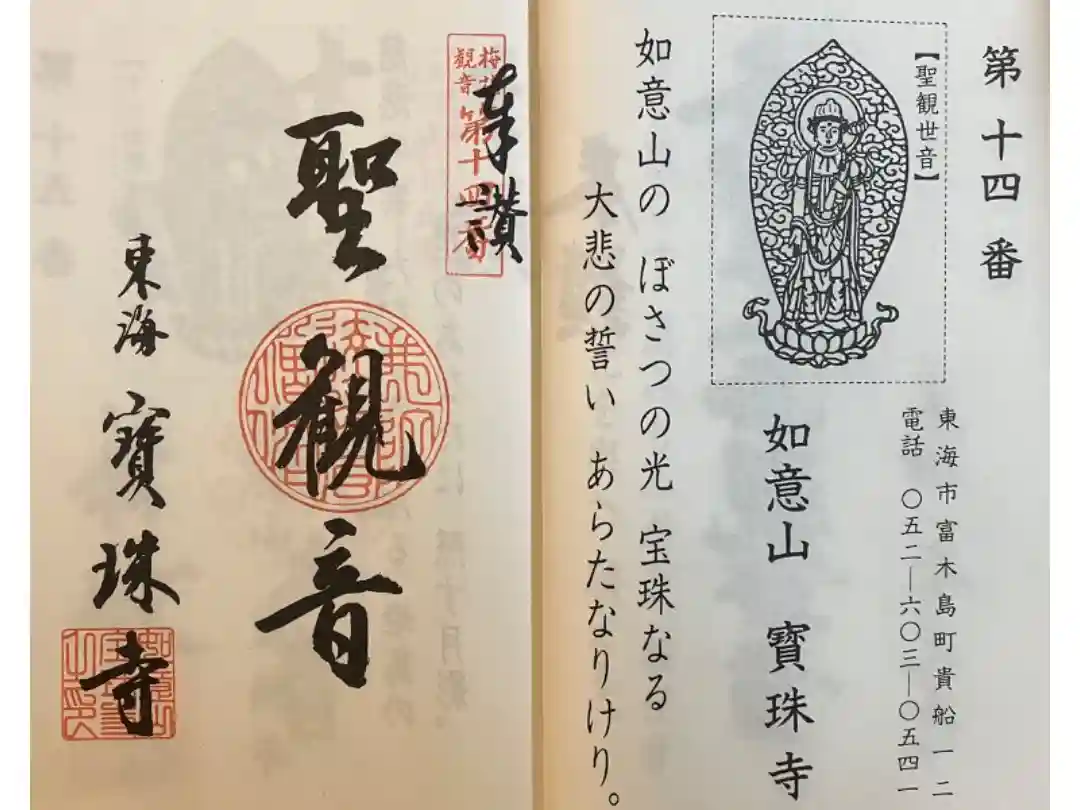 第十四番
【聖観世音】
東海市富木島町貴船一二
電話 〇五二―六〇三―〇五四一
如意山 寶珠寺
如意山の ぼさつの光 宝珠なる
大悲の誓い あらたなりけり。
奉讃
観音
第十四番
聖觀音
東海 寶珠寺